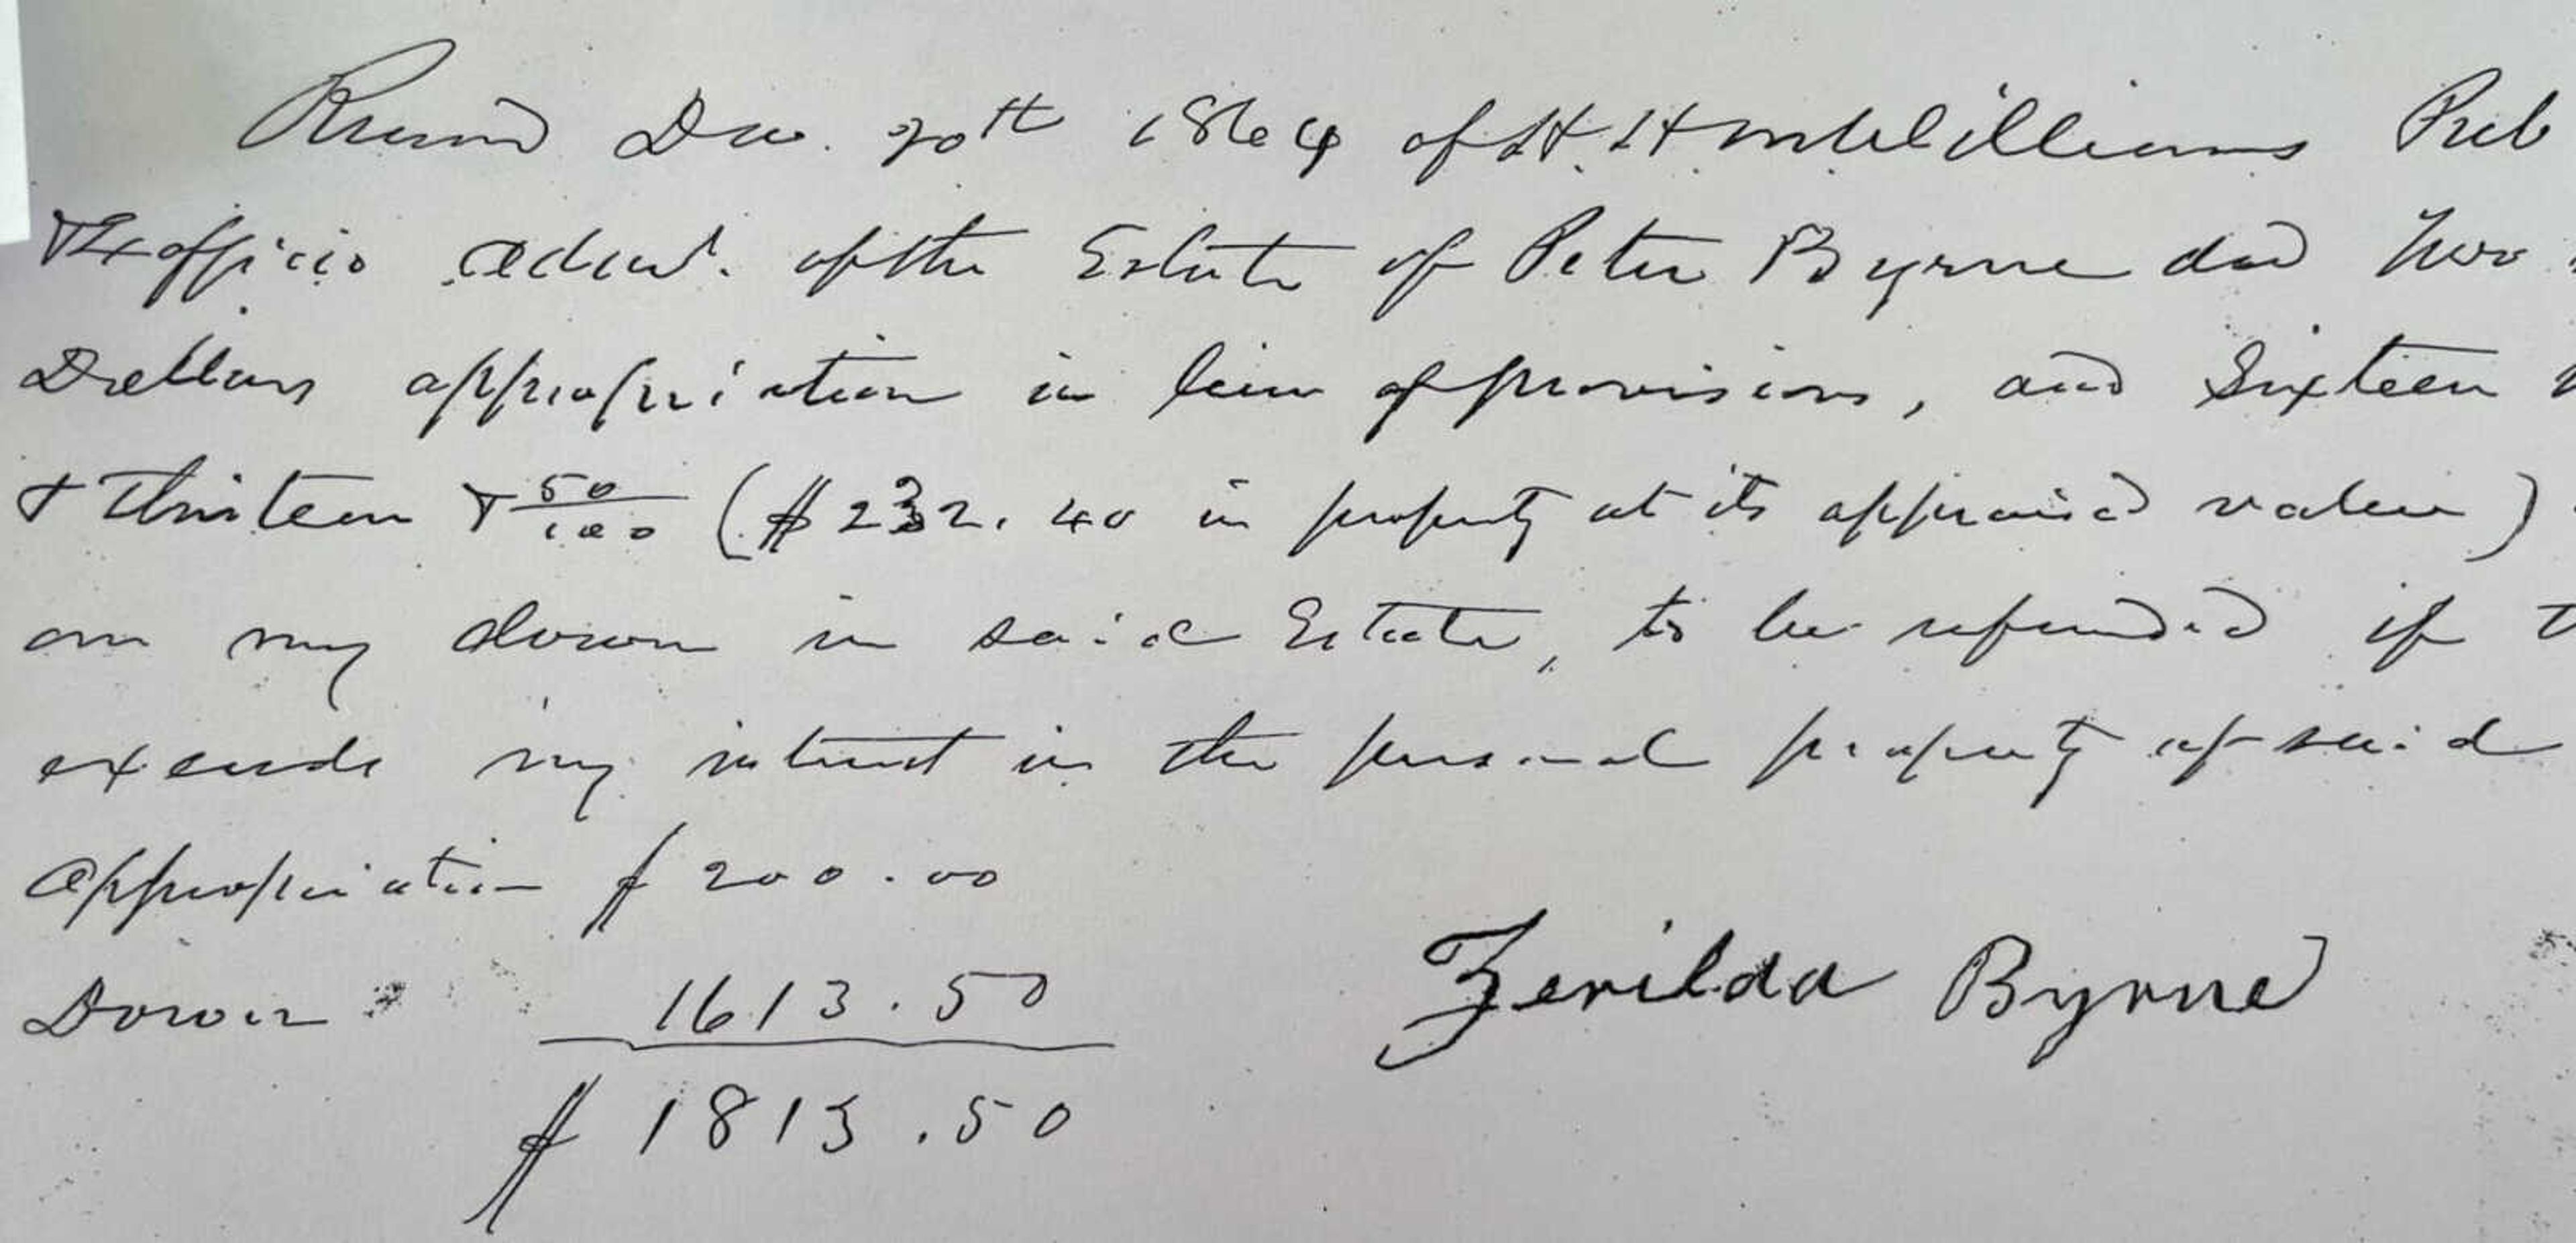 Recevd Dec. 20th 1864 of H. H. McWilliams Pub
& Exofficio Adms. of the Estate of Peter Byrne decd Two
Dollars appropriation in lieu of provisions, and Sixteen
& Thirteen & 50/100 ($232.40 in property at its appraised value)
on my dower in said Estate, to be refunded if
exceeds my interest in the personal property of said
Appropriation $ 200.00
Dower 1613.50
$ 1813.50
Zerilda Byrne